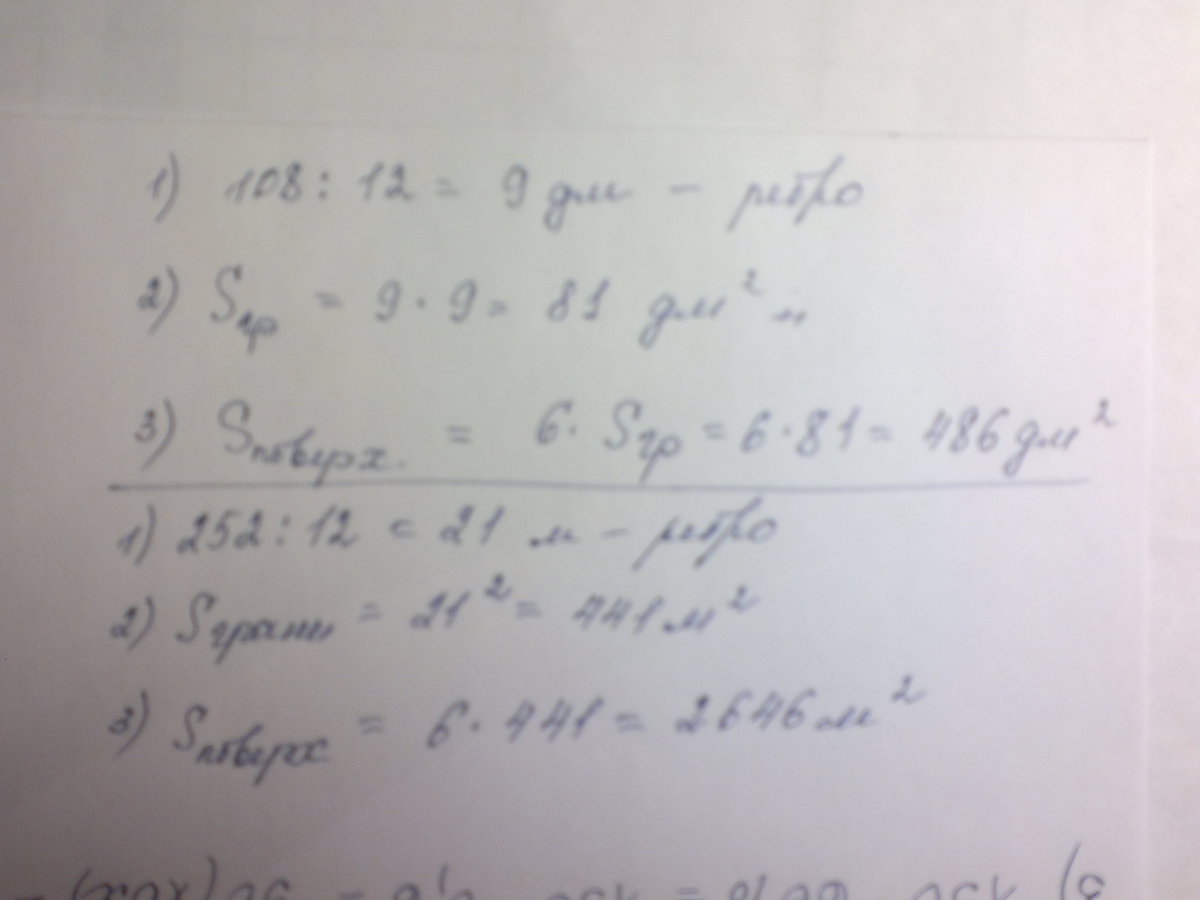 1) 108 : 12 = 9 дм – ребро
2) Sгр = 9 · 9 = 81 дм²
3) Sповерх. = 6 · Sгр = 6 · 81 = 486 дм²
1) 252 : 12 = 21 м – ребро
2) Sграни = 21² = 441 м²
3) Sповерх = 6 · 441 = 2646 м²